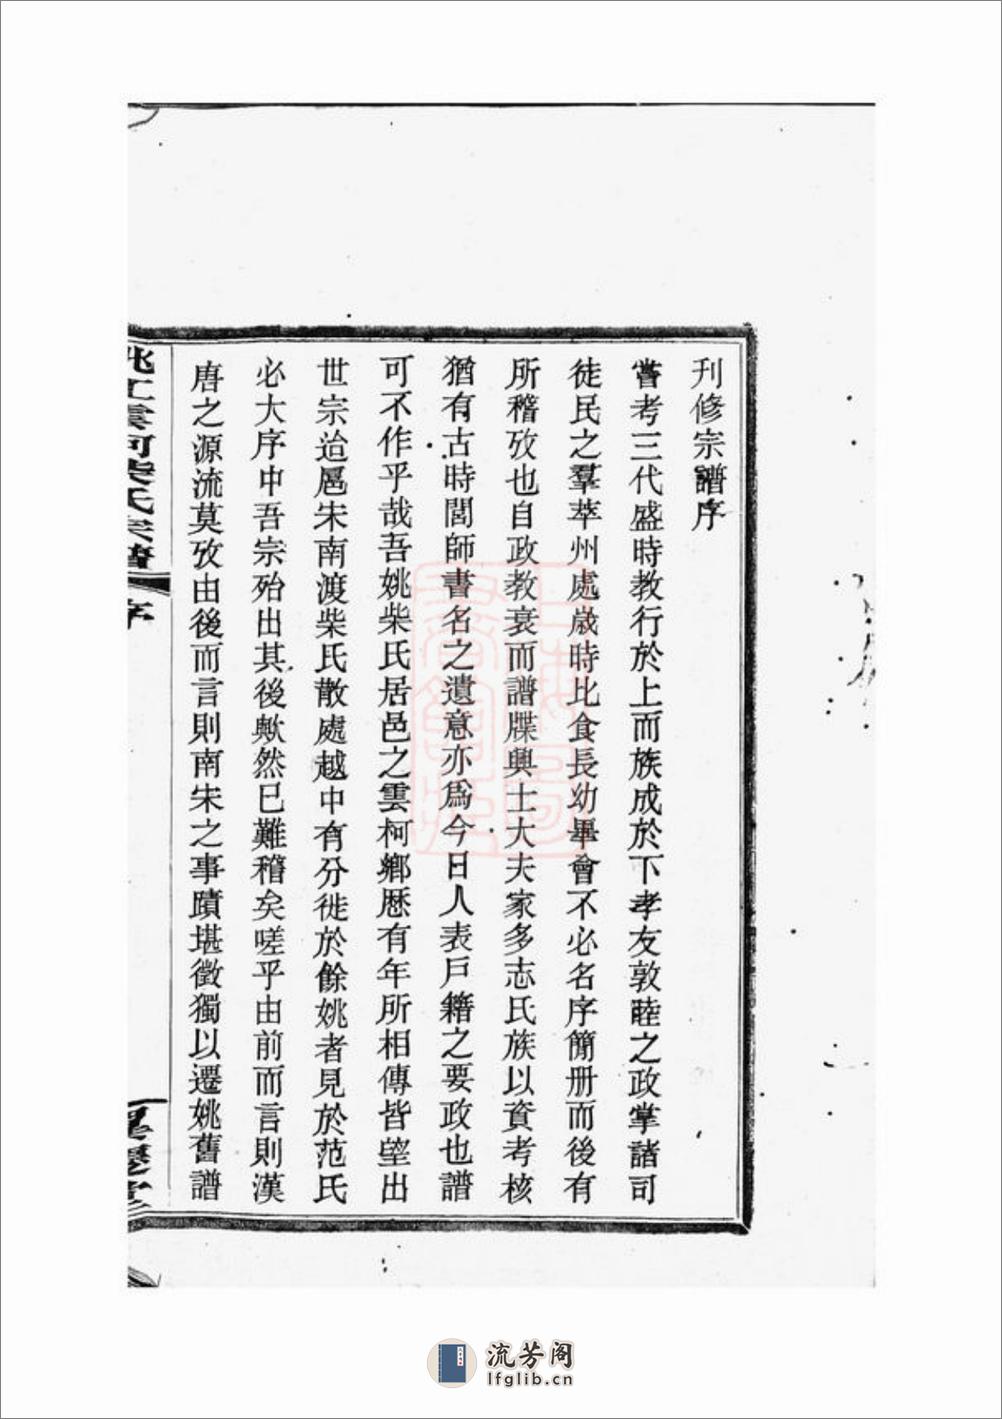 刊修宗譜序
嘗考三代盛時教行於上而族成於下孝友敦睦之政掌諸司
徒民之羣萃州處歲時比食長幼畢會不必名序簡册而後有
所稽攷也自政教衰而譜牒興士大夫家多志氏族以資考核
猶有古時閭師書名之遺意亦爲今日人表戶籍之要政也譜
可不作乎哉吾姚柴氏居邑之雲柯鄉歷有年所相傳皆望出
世宗迨扈宋南渡柴氏散處越中有分徙於餘姚者見於范氏
必大序中吾宗殆出其後歟然已難稽矣嗟乎由前而言則漢
唐之源流莫攷由後而言則南宋之事蹟堪徵獨以遷姚舊譜
姚江雲柯柴氏宗譜 序
流芳阁
lfglib.cn